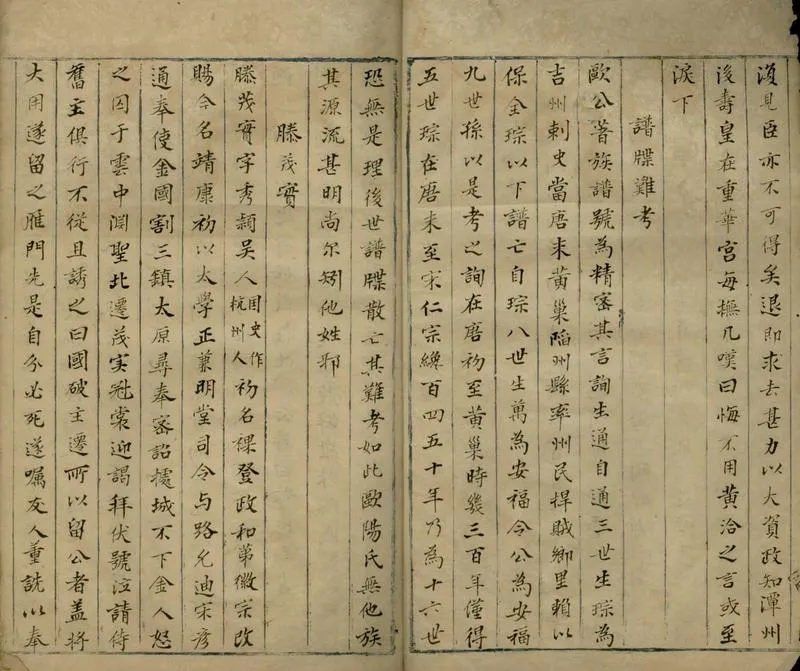 湏見臣亦不可得矣退即求去甚力以大資政知潭州
後壽皇在重華宫每撫几嘆曰悔不用黄洽之言或至
淚下
譜牒難考
歐公著族譜號為精審其言詢生通自通三世生琮為
吉州刺史當唐末黄巢陷州縣率州民捍賊鄉里賴以
保全琮以下譜亡自琮八世生萬為安福令公為安福
九世孫以是考之詢在唐初至黄巢時幾三百年僅得
五世琮在唐末至宋仁宗纔百四五十年乃為十六世
恐無是理後世譜牒散亡其難考如此歐陽氏無他族
其源流甚明尚尔矧他姓耶
滕茂實
滕茂實字秀穎吴人国史作杭州人初名祼登政和第徽宗改
賜今名靖康初以太学正兼明堂司令与路允迪宋彦
通奉使金國割三鎮太原尋奉密詔據城不下金人怒
之囚于雲中淵聖北遷茂实冠裳迎謁拜伏號泣請侍
舊主俱行不從且誘之曰國破主遷所以留公者盖将
大用遂留之雁門先是自分必死遂嘱友人董詵以奉